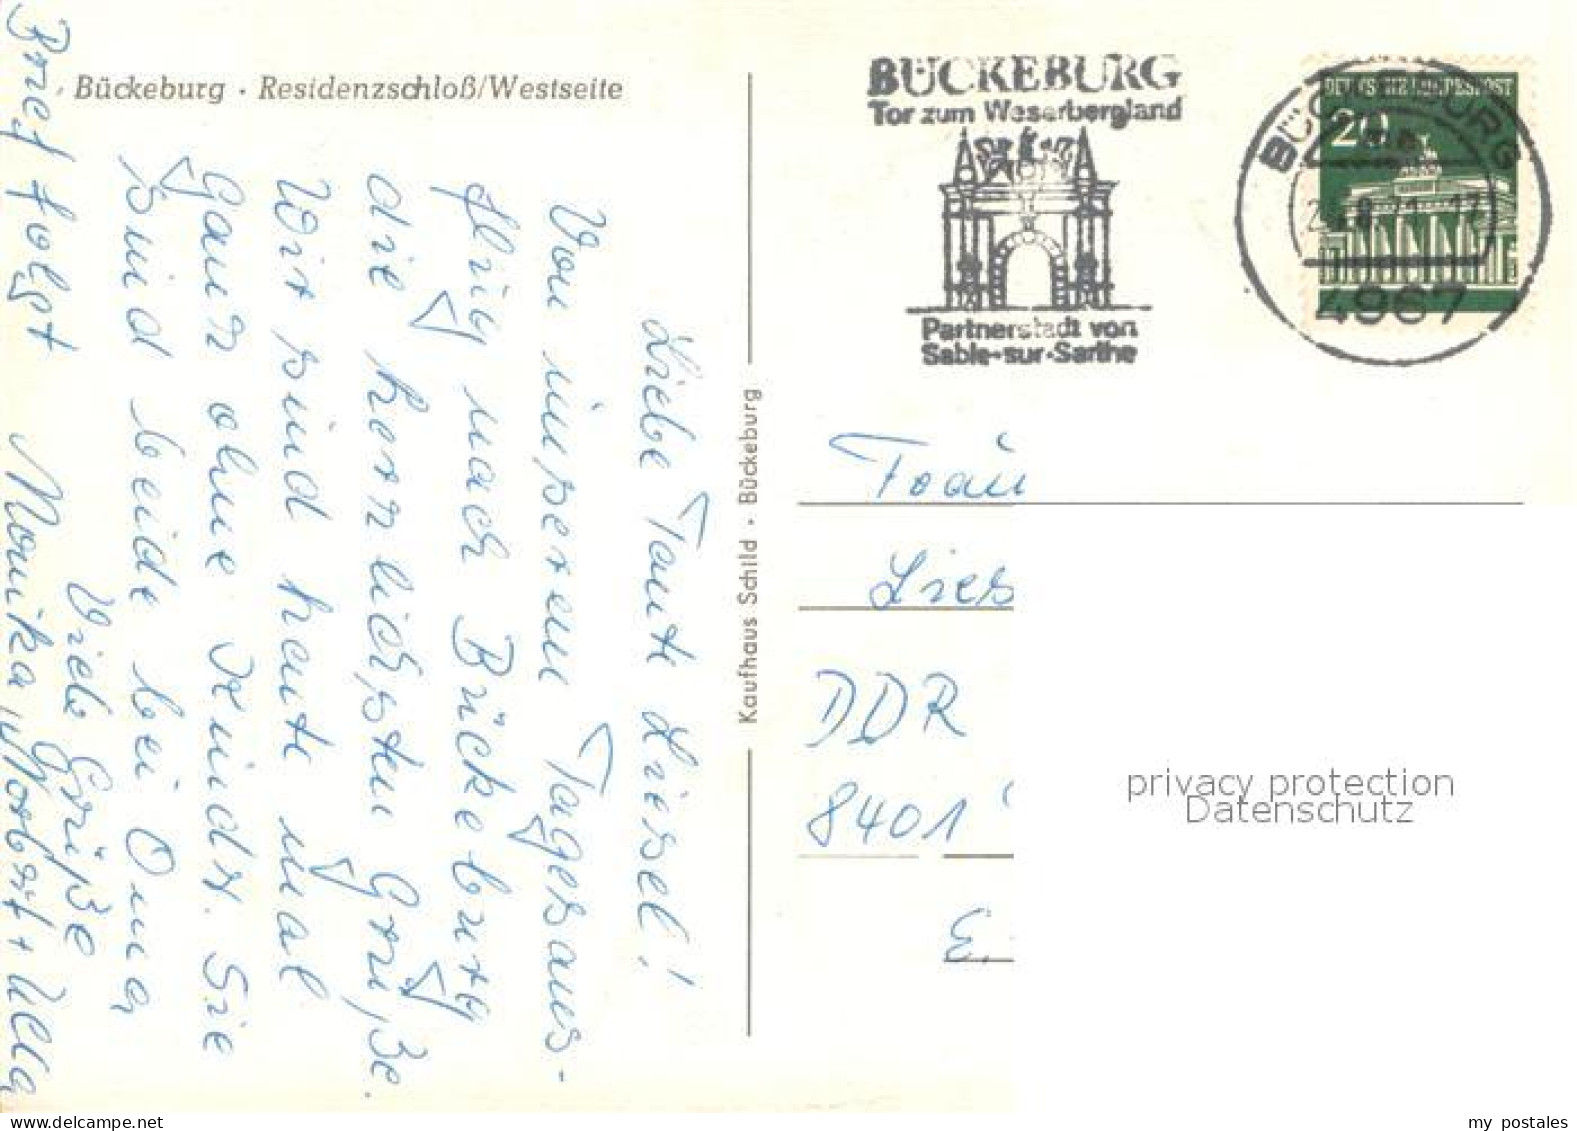 Bückeburg · Residenzschloß/Westseite
Liebe Tante Liesel!
Von unserem Tagesaus-
flug nach Bückeburg
die herzlichsten Grüße.
Wir sind heute mal
ganz ohne Kinder. Sie
sind beide bei Oma
Viele Grüße
Monika, Norbert + Ulla
Brief folgt
Kaufhaus Schild · Bückeburg
BÜCKEBURG
Tor zum Weserbergland
Partnerstadt von
Sable-sur-Sarthe
DEUTSCHE BUNDESPOST
20
BÜCKEBURG
4967
DDR
8401
privacy protection
Datenschutz
my postales